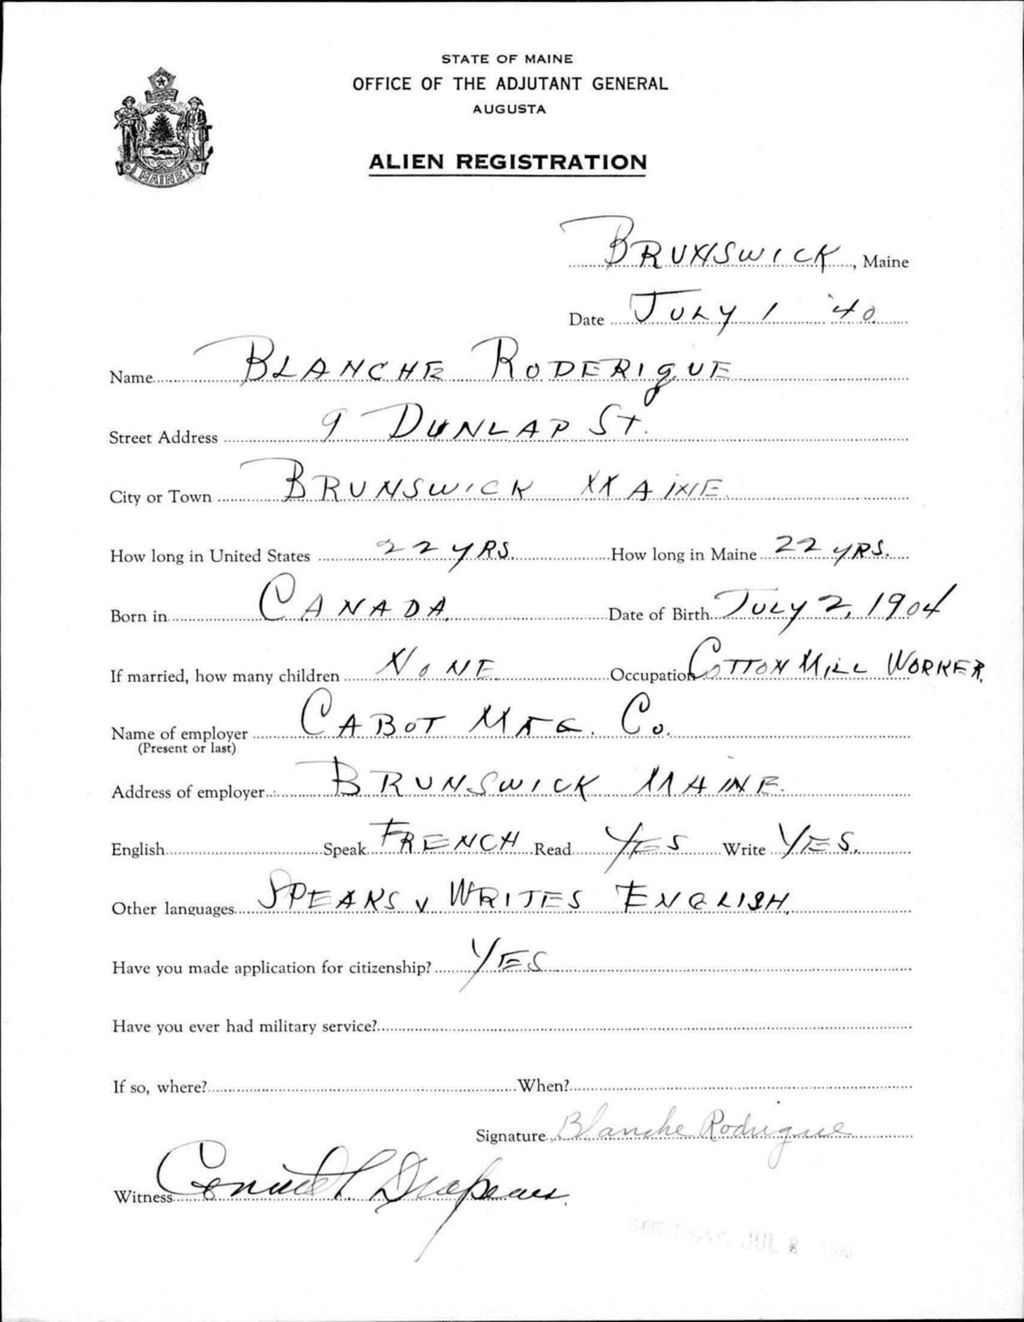 STATE OF MAINE
OFFICE OF THE ADJUTANT GENERAL
AUGUSTA
MAINE
ALIEN REGISTRATION
BRUNSWICK, Maine
Date JULY 1 '40
Name BLANCHE RODERIGUE
Street Address 9 DUNLAP ST.
City or Town BRUNSWICK MAINE
How long in United States 22 YRS. How long in Maine 22 YRS.
Born in CANADA. Date of Birth JULY 2, 1904
If married, how many children NONE Occupation COTTON MILL WORKER.
Name of employer CABOT MFG. Co.
(Present or last)
Address of employer BRUNSWICK MAINE.
English Speak FRENCH Read YES Write YES.
Other languages SPEAKS & WRITES ENGLISH.
Have you made application for citizenship? YES
Have you ever had military service?
If so, where? When?
Signature Blanche Rodrigue
Witness Drapeau.
JUL